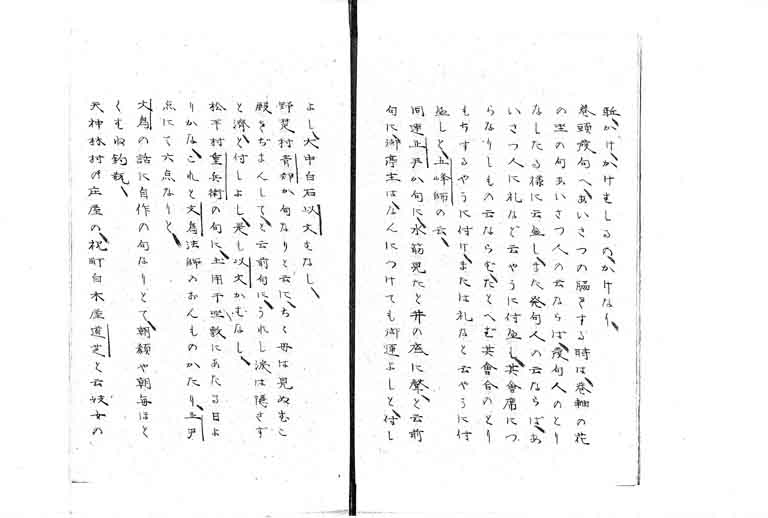 かけかけもしるのかけなり、
巻頭発句へ、あいさつの脇をする時は巻軸の花
の定の句あいさつ人の云ならば、発句人のとり
なしたる様に云益し、また発句人の云ならば、あ
いさつ人に礼など云やうに付益し、其會席につ
らなりしもの云ならむ、たとへむ其會合のとり
もちするやうに付け、または礼など云やうに付
益しと五峰師の云、
同連 か句に、水筋見たと井の底に聲、と云前
句に、御亭主はなんにつけても御運よし、と付し
よし、大中白石以文もなし、
野楚村青郊か句なりと云に、ちゝ母は見ぬむこ
殿をちよんして、と云前句に、うれし涙は隠さず
と濟、と付しよし、是も以文かむなし、
松下村重兵衛の句に、土用干 敷にあたる日よ
りかな、これと文鳥法師のおんものかたり、
点にて六点なりと、
文鳥の話に自作の句なりとて、朝顔や朝毎はと
くも収釣瓶、
天神林村の庄屋の 枕町白木屋道芝と云妓女の